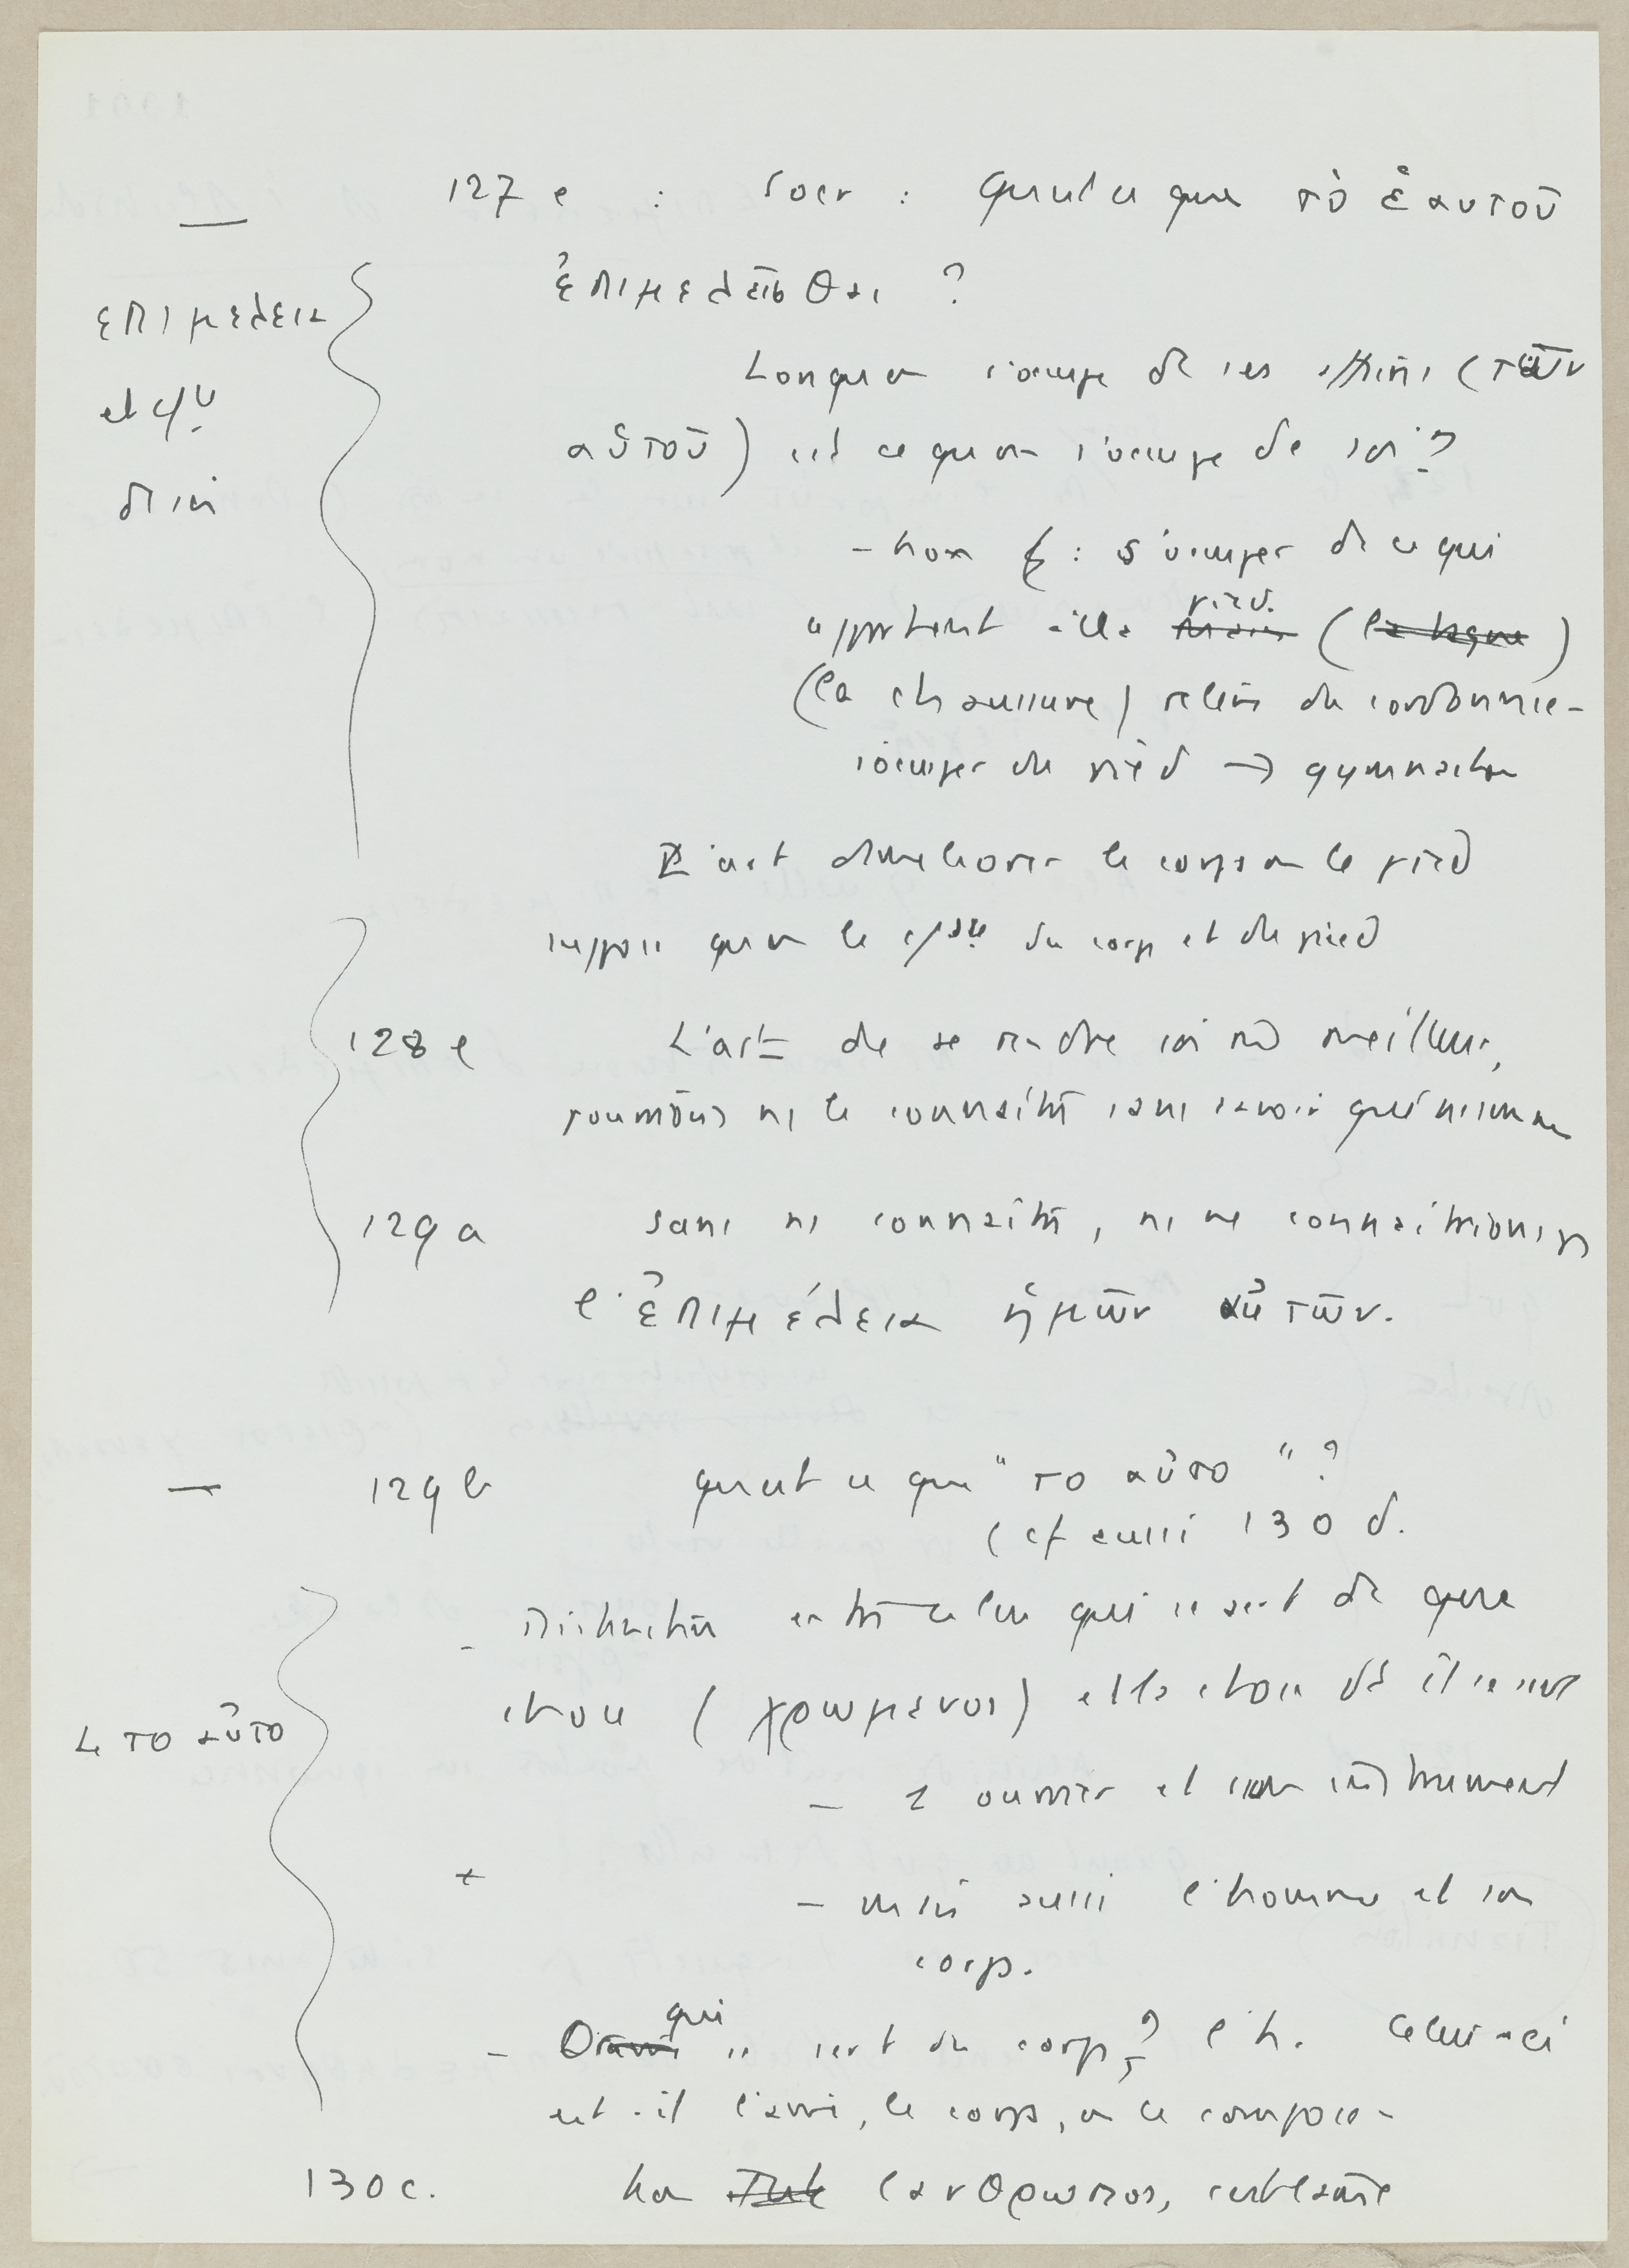 127 e : Socr : qu'est ce que τὸ ἑαυτοῦ
ἐπιμελεῖσθαι ?
επιμελεια
et
de soi
Lorsqu'on s'occupe de ses affaires (τῶν
αὑτοῦ) est ce qu'on s'occupe de soi ?
– non : s'occuper de ce qui
appartient à la main pied (la bague)
(la chaussure) relève du cordonnier
s'occuper du pied → gymnastique
L'art d'améliorer le corps ou le pied
suppose qu'on le du corps et du pied
128 e L'art de se rendre soi même meilleur,
pourrions ns le connaître sans savoir qui ns sommes
129 a Sans ns connaître, ns ne connaîtrions pas
l'ἐπιμέλεια ἡμῶν αὐτῶν.
— 129 b qu'est ce que "το αὐτο" ?
(cf aussi 130 d.
- Distinction entre celui qui se sert de quelque
chose (χρωμενος) et la chose dont il se sert
Le το αὐτο
– 1 ouvrier et son instrument
+ – mais aussi l'homme et son
corps.
- Or qui se sert du corps ? l'h. Celui-ci
est-il l'âme, le corps, ou le composé –
130 c. l'ανθρωπος, c'est l'âme